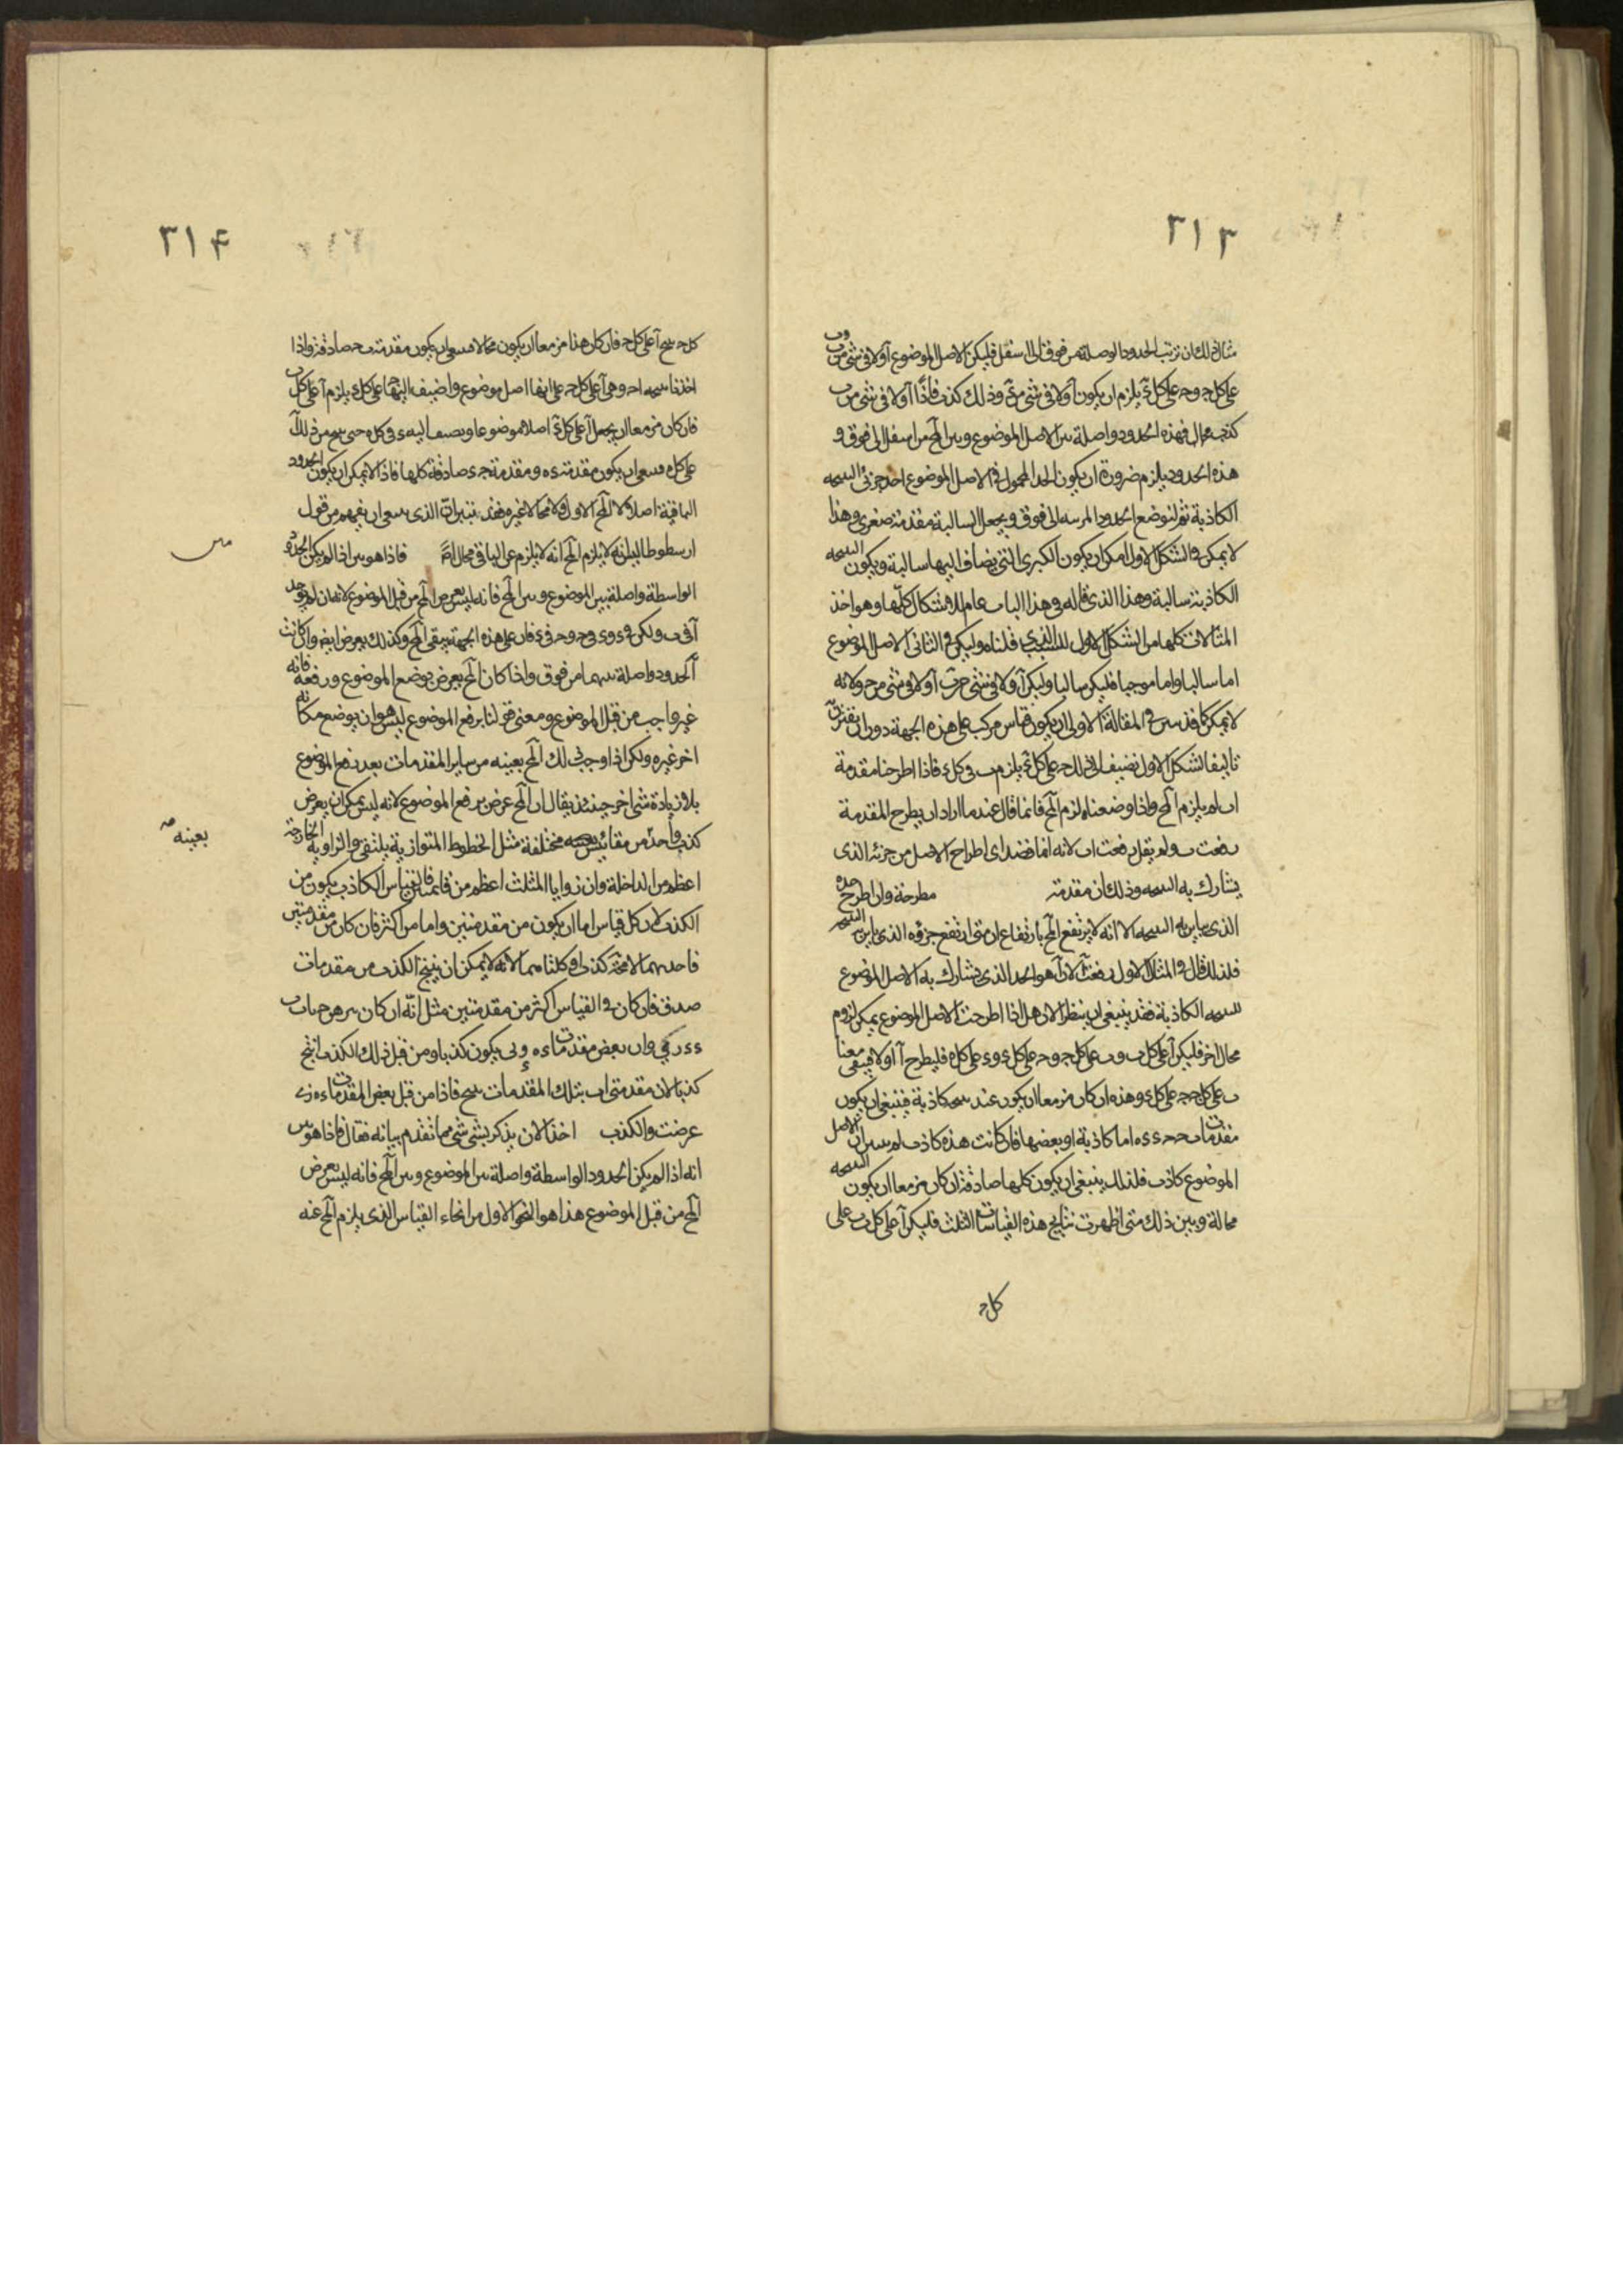 ٣١٣
مثال ذلك ان ترتب الحدود الواصلة من فوق الى اسفل فليكن الاصل الموضوع آ ولا في شي من ب وب
على كل ج وج على كل ء يلزم ان يكون آ ولا في شي من ء وذلك كذب فاذا آ ولا في شي من ب
كذب محال فهذه الحدود واصلة بين الاصل الموضوع وبين المح من اسفل الى فوق و
هذه الحدود يلزم ضرورة ان يكون الحد المحمول في الاصل الموضوع احد جزئي النتيجة
الكاذبة ثم لنوضع الحدود الى فوق ويجعل السالبة مقدمة صغرى وهذا
لا يمكن في الشكل الاول امكان يكون الكبرى التي يضاف اليها سالبة ويكون النتيجة
الكاذبة سالبة وهذا الذي قاله في هذا الباب عام للاشكال كلها وهو اخذ
المثالات كلها من الشكل الاول للسبب الذي قلناه وليكن في الثاني الاصل الموضوع
اما سالبا واما موجبا فليكن سالبا وليكن آ ولا في شي من ب آ ولا في شي من ج ولانه
لا يمكن كما قد تبين في المقالة الاولى ان يكون قياس مركب على هذه الجهة دون ان يقترن
تاليف الشكل الاول نضيف الى ذلك ج على كل ء يلزم ب في كل ء فاذا اطرحنا مقدمة
اب لم يلزم المح واذا وضعناه لزم المح فانما قال عند ما اراد ان يطرح المقدمة
رفعت ب ولم يقل رفعت اب لانه انما قصد اى اطراح الاصل من جزئه الذي
يشارك به النتيجة وذلك ان مقدمة مطرحة وان اطرح حده
الذي يباين به النتيجة الا انه لا يرتفع المح بارتفاع ان متى ارتفع جزؤه الذي يباين النتيجة
فلذلك قال في المثال الاول رفعت آ لان آ هو الحد الذي يشارك به الاصل الموضوع
للنتيجة الكاذبة فقد ينبغي ان ينظر الان هل اذا اطرحت الاصل الموضوع يمكن لزوم
محال اخر فليكن آ على كل ب وب على كل ج وج على كل ء وء على كل ه فليطرح آ اولا فيبقى معنا
ب على كل ج ج على كل ء وهذه ان كان مزمعا ان يكون عنه نتيجة كاذبة فينبغي ان يكون
مقدمات اما كاذبة او بعضها فان كانت هذه كاذب لم يتبين ان الاصل
الموضوع كاذب فلذلك ينبغي ان يكون كلها صادقة ان كان مزمعا ان يكون النتيجة
محالة وبين ذلك متى اظهرت نتايج هذه القياسات الثلث فليكن آ على كل ب ب على
كل ج
٣١۴
كل ج ينتج آ على كل ج فان كان هذا مزمعا ان يكون محالا فينبغي ان يكون مقدمة ب ج صادقة واذا
اخذنا نتيجة اج وهي آ على كل ج على انها اصل موضوع واضيف اليها ج على كل ء يلزم آ على كل ء
فان كان مزمعا ان يجعل آ على كل ء اصلا موضوعا ويضيف اليه ء في كل ه حتى ينتج من ذلك آ
على كل ه فينبغي ان يكون مقدمة ء ه ومقدمة ج ء صادقة كلها فاذا لا يمكن ان يكون الحدود
الباقية اصلا لا المح الاول ولا محالا غيره فقد تبين ان الذي ينبغي ان يفهم من قول
ارسطوطاليس انه لا يلزم المح انه لا يلزم عن الباقي محال اصلا فاذا هو بين اذا لم يكن الحدود
الواسطة واصلة بين الموضوع وبين المح فانه ليس يعرض المح من قبل الموضوع لانه ان لم يوجد
آ في ب ولكن في ء وء في ج وج في ء فان على هذه الجهة يبقى المح وكذلك يعرض ايضا وان كانت
الحدود واصلة بينهما من فوق واذا كان المح يعرض بوضع الموضوع ورفعه فانه
غير واجب من قبل الموضوع ومعنى قولنا برفع الموضوع ليس هو ان يوضع مكانه
اخر غيره ولكن اذا وجب ذلك المح بعينه من ساير المقدمات بعد رفع الموضوع
بلا زيادة شي اخر حينئذ يقال ان المح عرض برفع الموضوع لانه ليس يمكن ان يعرض
كذب واحد من مقائيس مختلفة مثل الخطوط المتوازية يلتقي والزاوية الخارجة
اعظم من الداخلة وان زوايا المثلث اعظم من قائمتين فالقياس الكاذب يكون من
الكذب لان كل قياس اما ان يكون من مقدمتين واما من اكثر فان كان من مقدمتين
فاحدهما لا محة كذب او كلتاهما لانه لا يمكن ان ينتج الكذب من مقدمات
صدق فان كان في القياس اكثر من مقدمتين مثل انه ان كان يبرهن ج باب
وان بعض مقدمات يكون كذبا ومن قبل ذلك الكذب انتج
كذبا لان مقدمتي اب بتلك المقدمات ينتج فاذا من قبل بعض المقدمات
عرضت والكذب اخذ الان يذكر بشي شي مما تقدم بيانه فقال فاذا هو بين
انه اذا لم يكن الحدود الواسطة واصلة بين الموضوع وبين المح فانه ليس يعرض
المح من قبل الموضوع هذا هو النحو الاول من انحاء القياس الذي يلزم المح عنه
بعينه صه